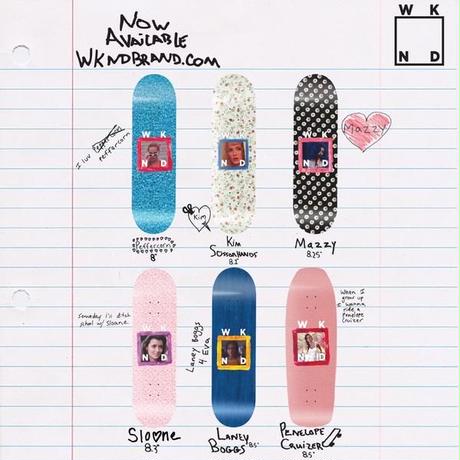 NOW
AVAILABLE
WKNDBRAND.COM
W K
N D
I luv
pefforcorn
W K
N D
W K
N D
W K
N D
Mazzy
Kim
Pefforcorn
8"
KIM
SCISSORHANDS
8.1
MAZZY
8.25"
Someday I'll ditch
school w/ Sloane
W K
N D
Laney Boggs
4 Eva
W K
N D
W K
N D
When I
grow up
I wanna
ride a
Penelope
Cruizer
Sloane
8.3"
LANEY
BOGGS 8.5"
PENELOPE
CRUIZER
8.5"